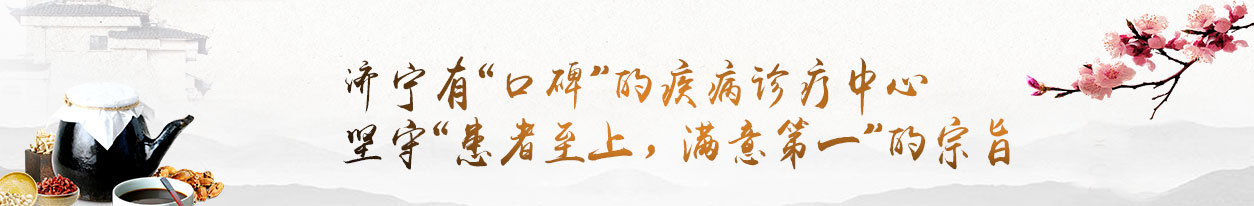 济宁有“口碑”的疾病诊疗中心
坚守“患者至上，满意第一”的宗旨